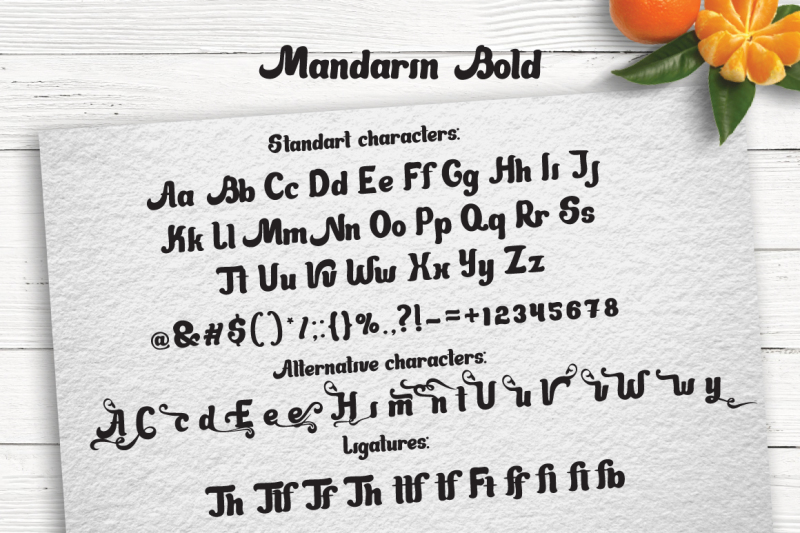 Mandarin Bold
Standart characters:
Aa Bb Cc Dd Ee Ff Gg Hh Ii Jj
Kk Ll Mm Nn Oo Pp Qq Rr Ss
Tt Uu Vv Ww Xx Yy Zz
@&#$()*/;:{}%.,?!-=+12345678
Alternative characters:
A C c d E e e H i m n t U u V v W w y
Ligatures:
Th Tf Th ttf tf Ft ff fi fi fb